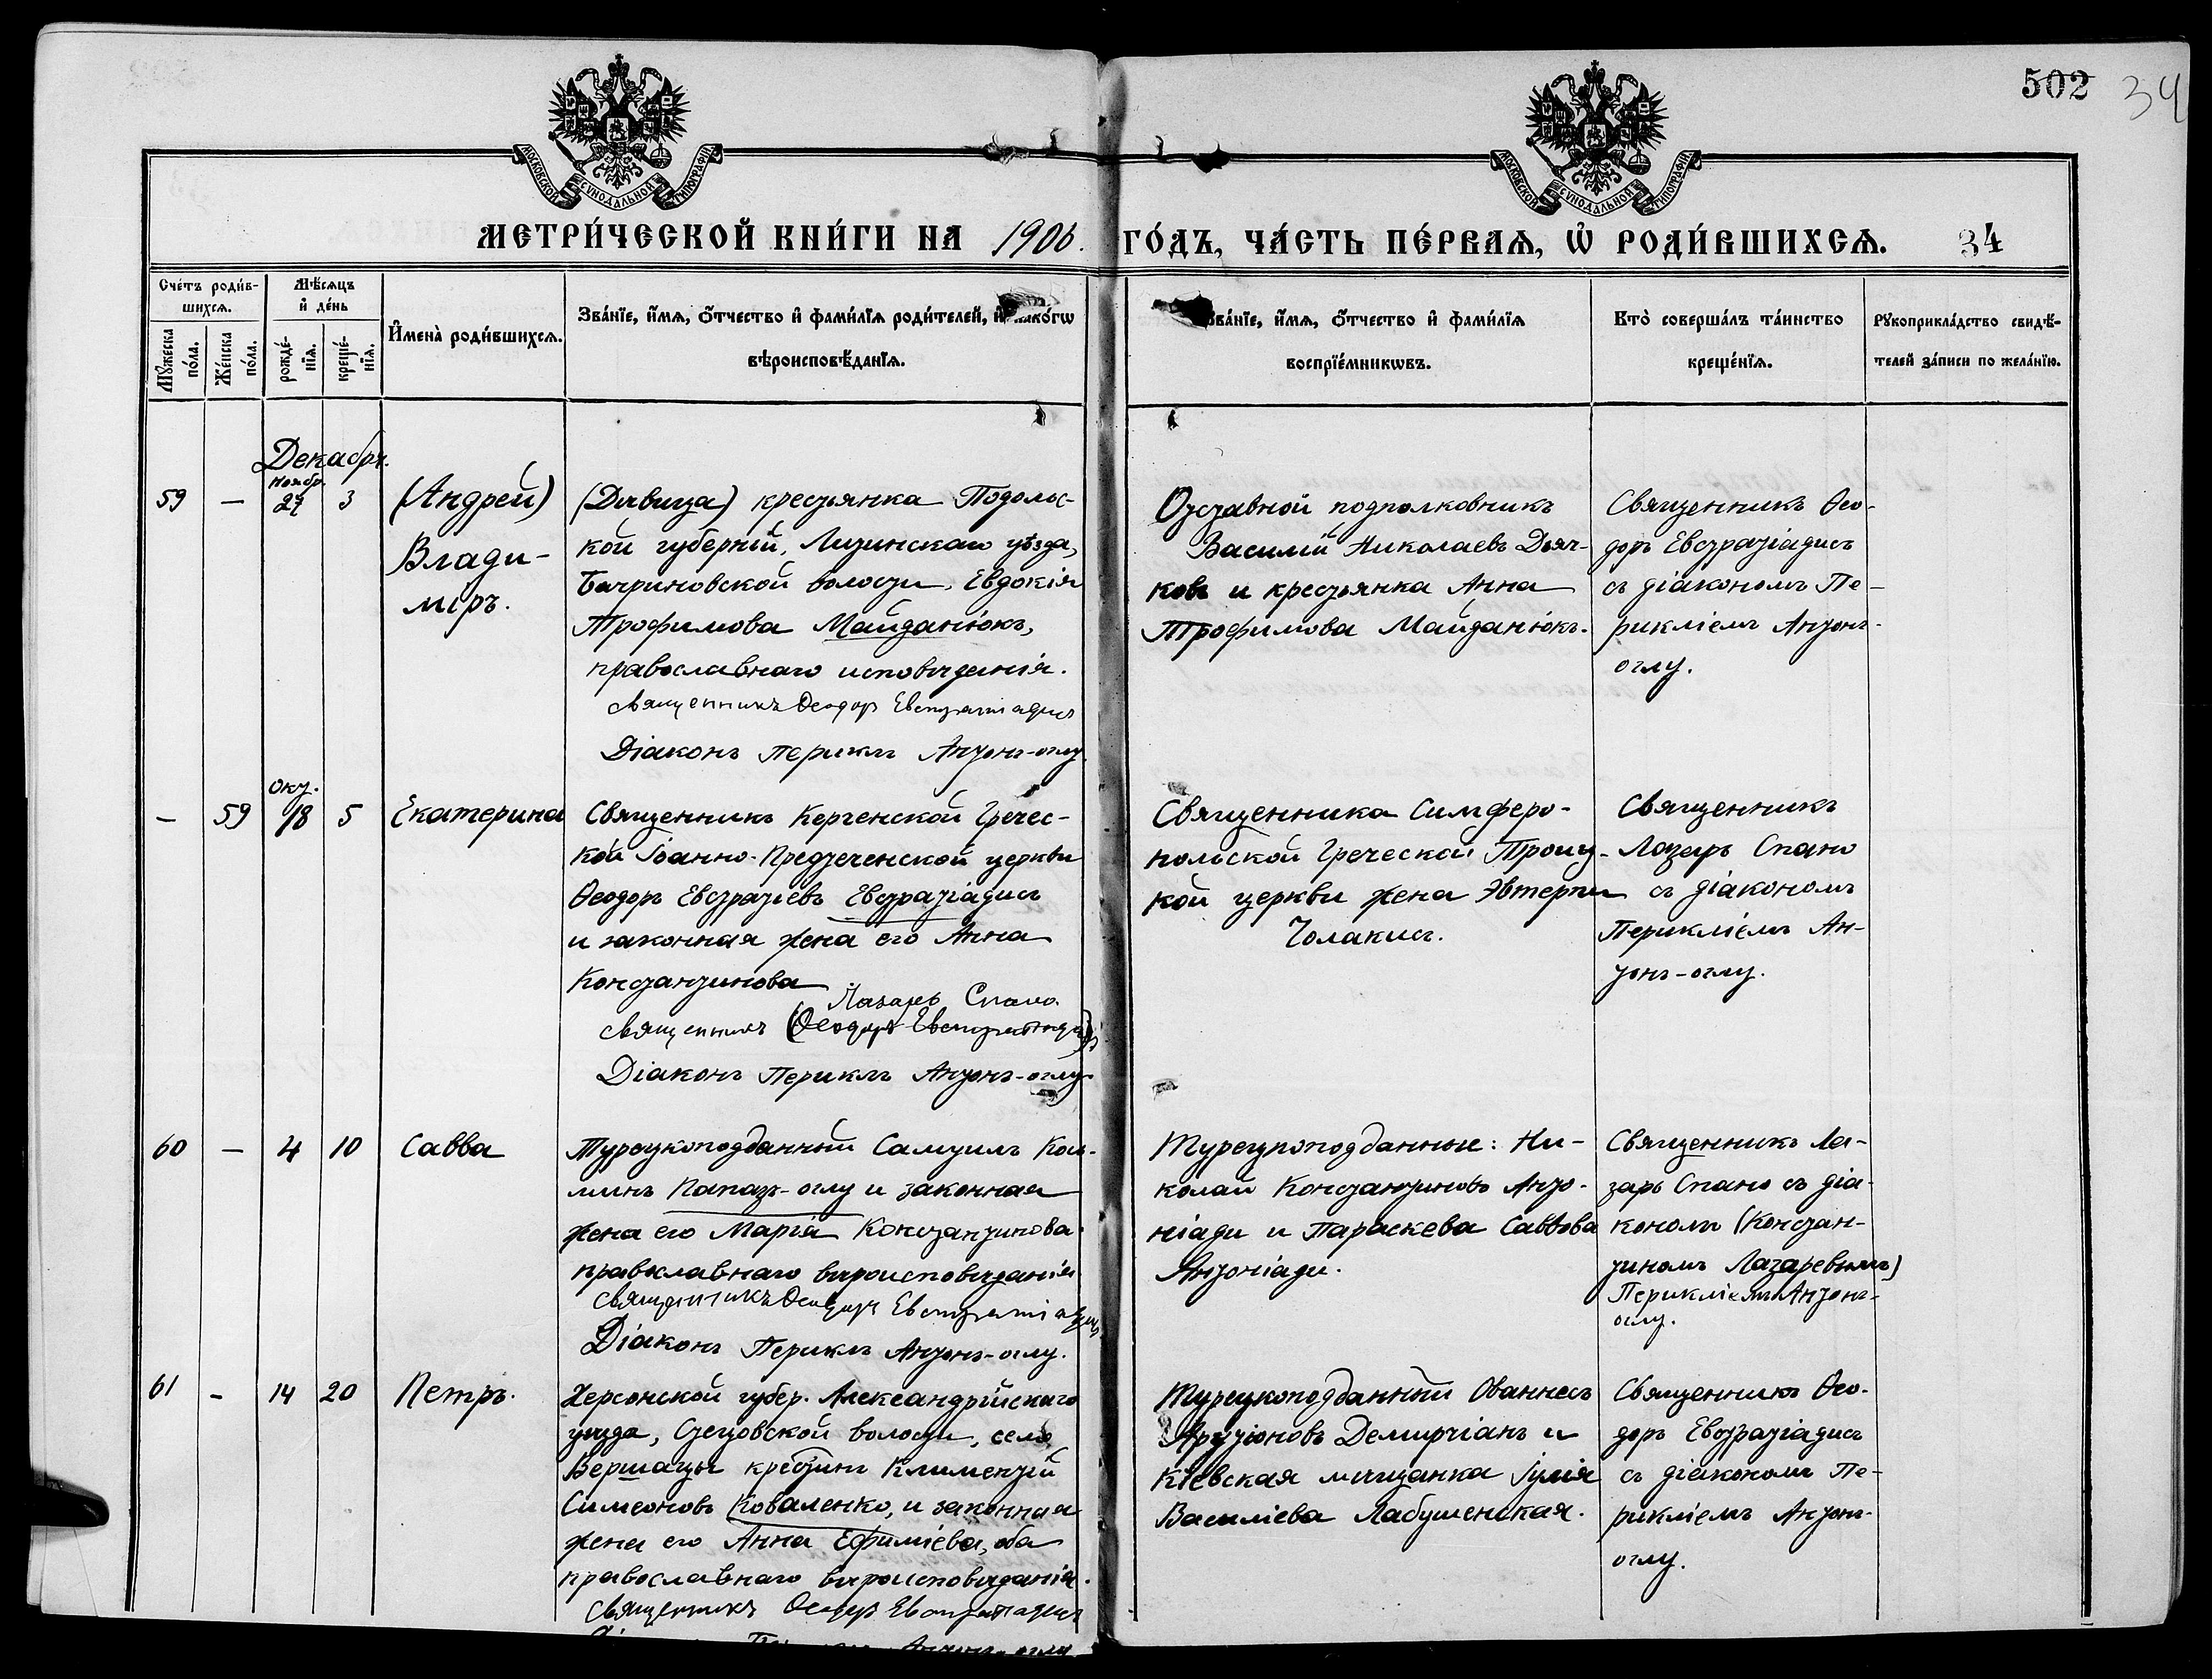 502 34
МОСКОВСКОЙ СѴНОДАЛЬНОЙ ТИПОГРАФІИ
МОСКОВСКОЙ СѴНОДАЛЬНОЙ ТИПОГРАФІИ
МЕТРИ́ЧЕСКОЙ КНИ́ГИ НА 1906. ГО́ДЪ, ЧА́СТЬ ПЕ́РВАѦ, Ѽ РОДИ́ВШИХСѦ. 34
Сче́тъ роди́в-
шихсѧ.
Мꙋ́жеска по́ла.
Же́нска по́ла.
Мѣ́сѧцъ
и҆ де́нь
рожде́-
нїѧ.
креще́-
нїѧ.
И҆мена̀ роди́вшихсѧ.
Зва́нїе, и҆́мѧ, ѻ҆́тчество и҆ фами́лїѧ роди́телей, и҆ како́гѡ
вѣроисповѣ́данїѧ.
Зва́нїе, и҆́мѧ, ѻ҆́тчество и҆ фами́лїѧ
воспрїе́мникѡвъ.
Кто̀ соверша́лъ та́инство
креще́нїѧ.
Рꙋкоприкла́дство свидѣ́-
телей за́писи по жела́нїю.
Декабрь.
59 — Ноябр. 27 3
(Андрей)
Влади-
міръ.
(Дѣвица) крестьянка Подольс-
кой губерніи, Литинскаго уѣзда,
Багриновской волости, Евдокія
Трофимова Майданюкъ,
православнаго исповѣданія.
Священникъ Ѳеодоръ Евстратіадисъ
Діаконъ Периклъ Антонъ-оглу.
Отставной подполковникъ
Василій Николаевъ Дьяч-
ковъ и крестьянка Анна
Трофимова Майданюкъ.
Священникъ Ѳео-
доръ Евстратіадисъ
съ діакономъ Пе-
рикліемъ Антонъ-
оглу.
— 59 Окт. 18 5 Екатерина
Священникъ Керченской Гречес-
кой Іоанно-Предтеченской церкви
Ѳеодоръ Евстратіевъ Евстратіадисъ
и законная жена его Анна
Константинова
Лазарь Спано.
Священникъ (Ѳеодоръ Евстратіадисъ)
Діаконъ Периклъ Антонъ-оглу.
Священника Симферо-
польской Греческой Троиц-
кой церкви жена Эвтерпи
Чолакисъ.
Священникъ
Лазарь Спано
съ діакономъ
Перикліемъ Ан-
тонъ-оглу.
60 — 4 10 Савва
Турецкоподданный Самуилъ Коз-
минъ Папазъ-оглу и законная
жена его Марія Константинова.
православнаго вѣроисповѣданія.
Священникъ Ѳеодоръ Евстратіадисъ
Діаконъ Периклъ Антонъ-оглу.
Турецкоподданные: Ни-
колай Константиновъ Анто-
ніади и Параскева Саввова
Антоніади.
Священникъ Ла-
зарь Спано съ діа-
кономъ (Констан-
тиномъ Лазаревымъ)
Перикліемъ Антонъ-
оглу.
61 - 14 20 Петръ.
Херсонской губер. Александрійскаго
уѣзда, Стецовской волости, села
Вершацы крестинъ Климентій
Симеоновъ Коваленко, и законная
жена его Анна Ефиміева, оба
православнаго вѣроисповѣданія.
Священникъ Ѳеодоръ Евстратіадисъ
Антонъ-оглу
Турецкоподданный Ованнесъ
Арутіоновъ Демирчіанъ и
Кіевская мѣщанка Іулія
Василіева Лабушенская.
Священникъ Ѳео-
доръ Евстратіадисъ
съ діакономъ Пе-
рикліемъ Антонъ-
оглу.